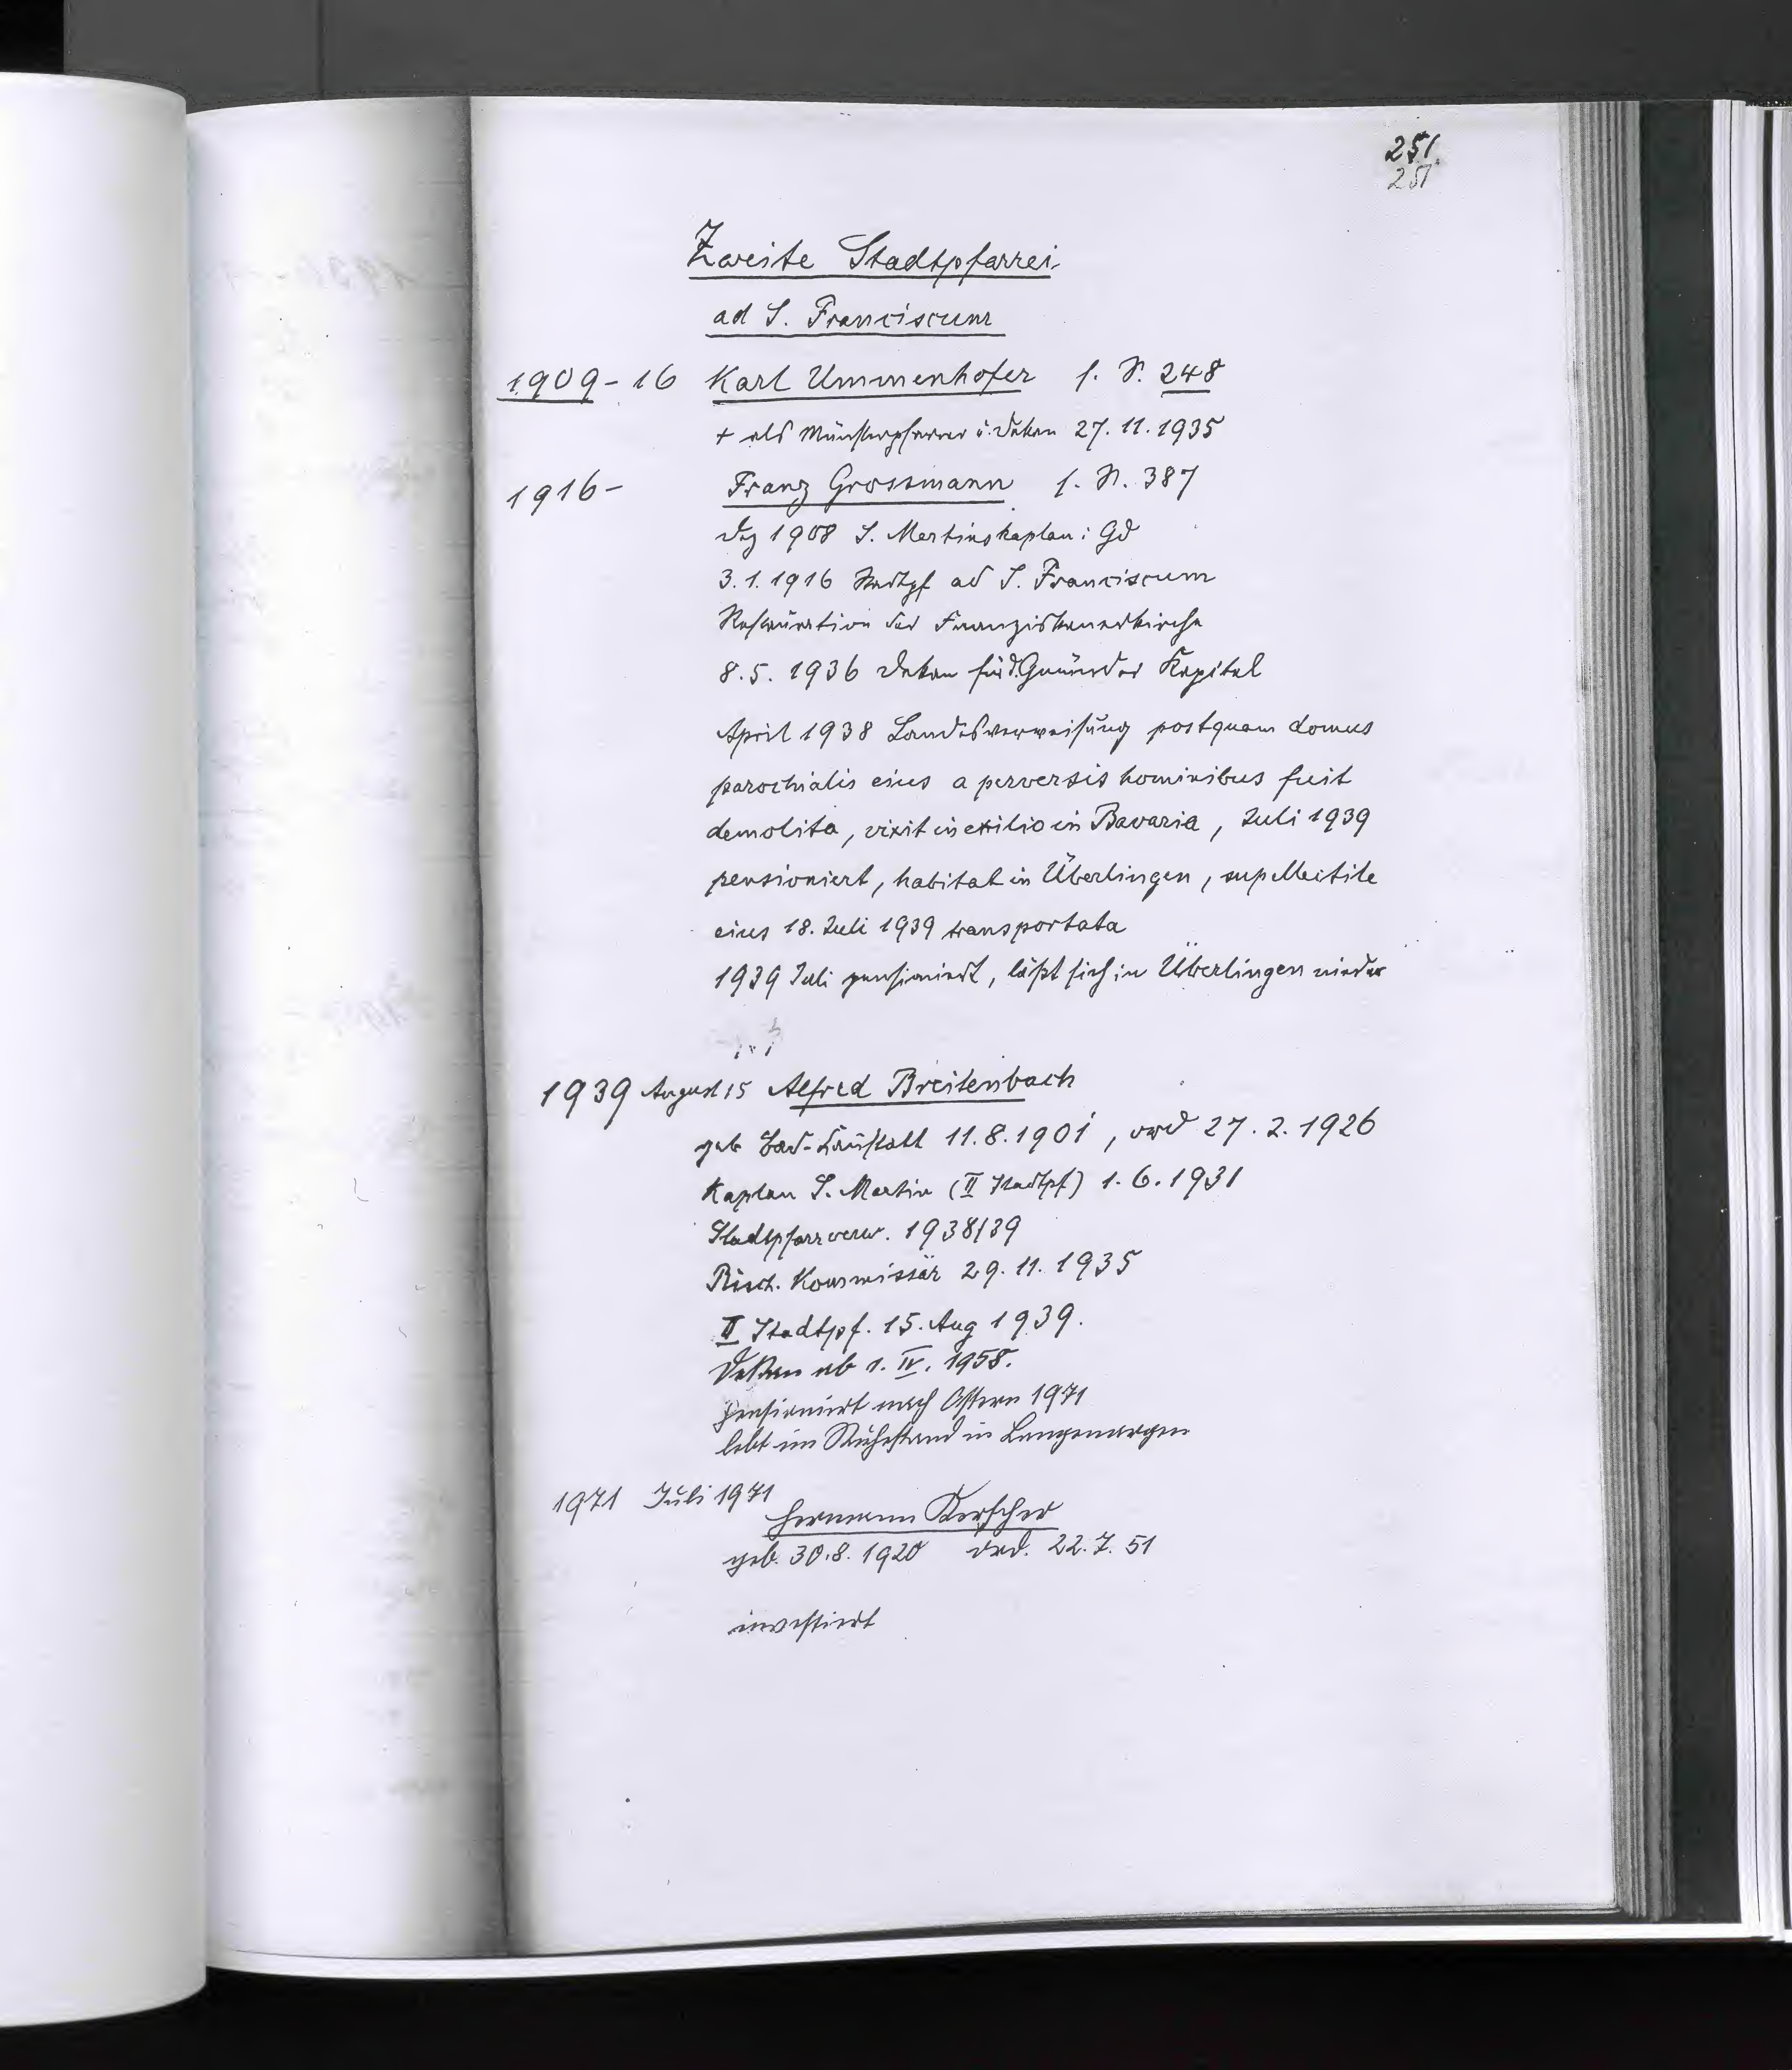 251.
251
Zweite Stadtpfarrei
ad S. Franciscum
1909-16 Karl Ummenhofer s. S. 248
+ als Münsterpfarrer u. Dekan 27. 11. 1935
1916- Franz Grossmann s. N. 387
Dez 1908 S. Martinskaplan i Gd
3. 1. 1916 Stadtpf ad S. Franciscum
Restauration der Franziskanerkirche
8. 5. 1936 Dekan für d. Gmünder Kapitel
April 1938 Landesverweisung postquam domus
parochialis eius a perversis hominibus fuit
demolita, vixit in exilio in Bavaria, Juli 1939
pensioniert, habitat in Überlingen, supellectile
eius 18. Juli 1939 transportata
1939 Juli pensioniert, läßt sich in Überlingen nieder
1939 August 15 Alfred Breitenbach
geb Bad-Cannstatt 11. 8. 1901, ord 27. 2. 1926
Kaplan S. Martin (II Stadtpf) 1. 6. 1931
Stadtpfarrverw. 1938/39
Bisch. Kommissär 29. 11. 1935
II Stadtpf. 15. Aug 1939.
Dekan ab 1. IV. 1958.
pensioniert nach Ostern 1971
lebt im Ruhestand in Langenargen
1971 Juli 1971
Hermann Kerscher
geb. 30. 8. 1920 ord. 22. 7. 51
investiert